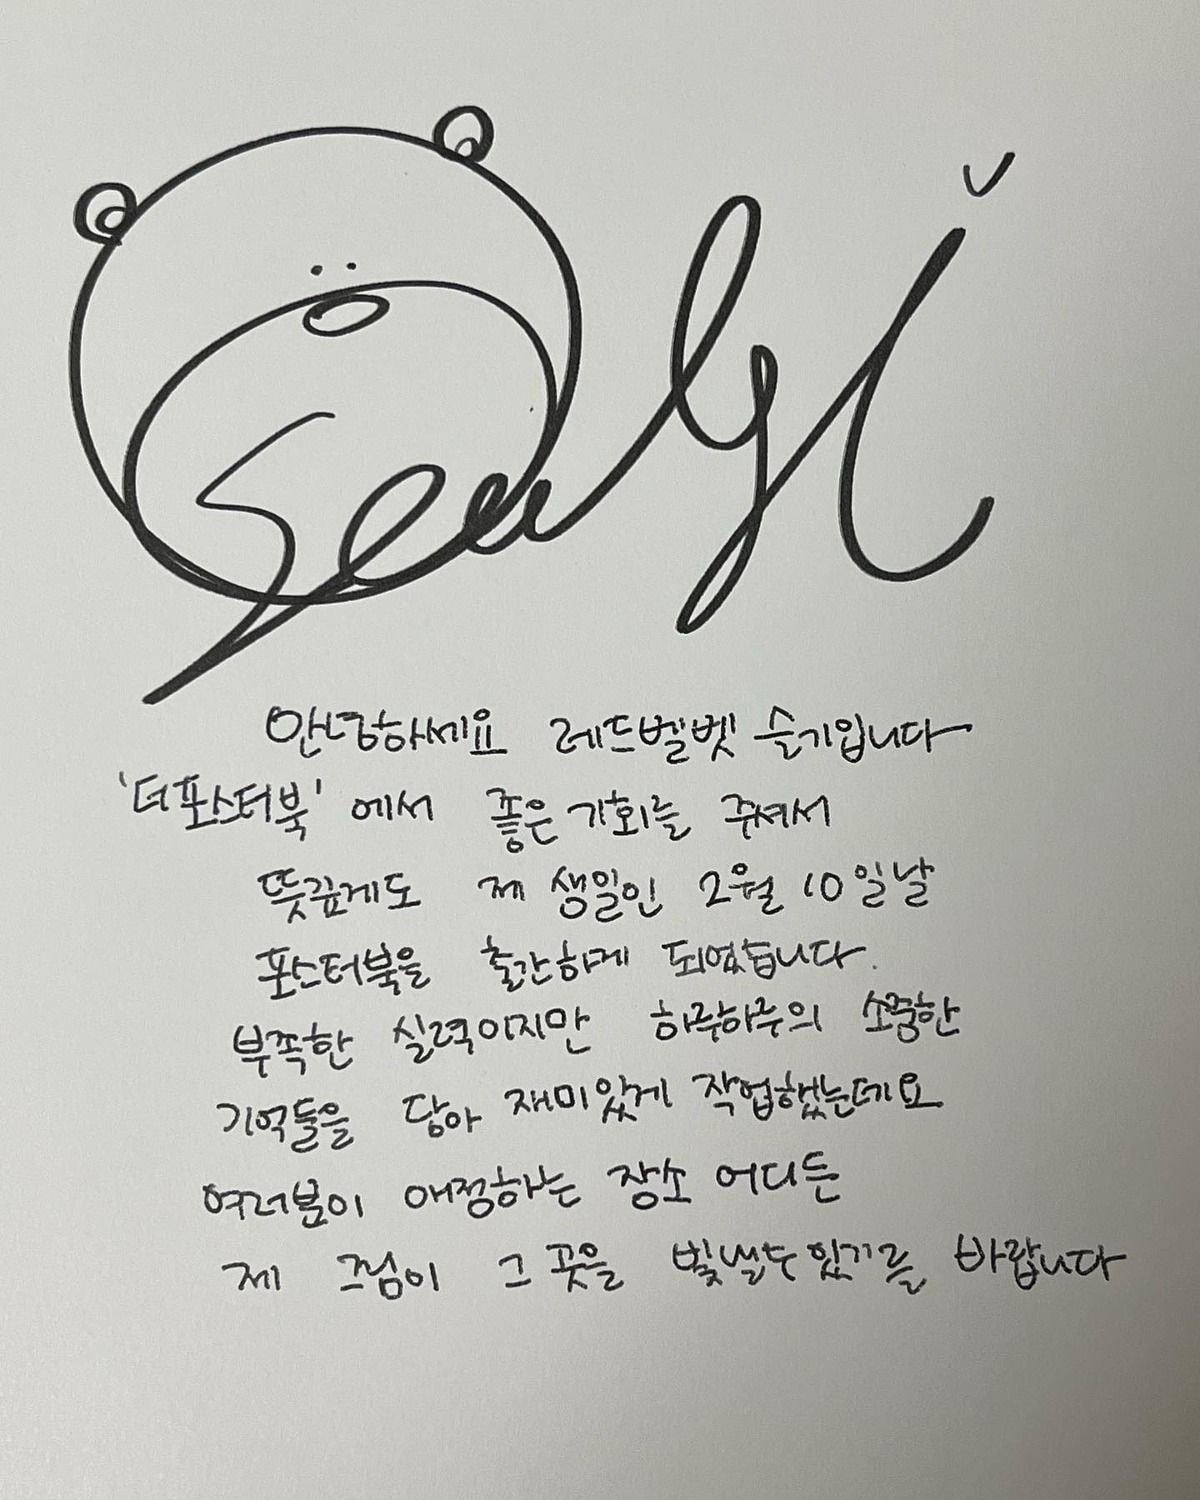 Seulgi
안녕하세요 레드벨벳 슬기입니다
'더포스터북' 에서 좋은 기회를 주셔서
뜻깊게도 제 생일인 2월 10일날
포스터북을 출간하게 되었습니다.
부족한 실력이지만 하루하루의 소중한
기억들을 담아 재미있게 작업했는데요
여러분이 애정하는 장소 어디든
제 그림이 그 곳을 빛낼수있기를 바랍니다